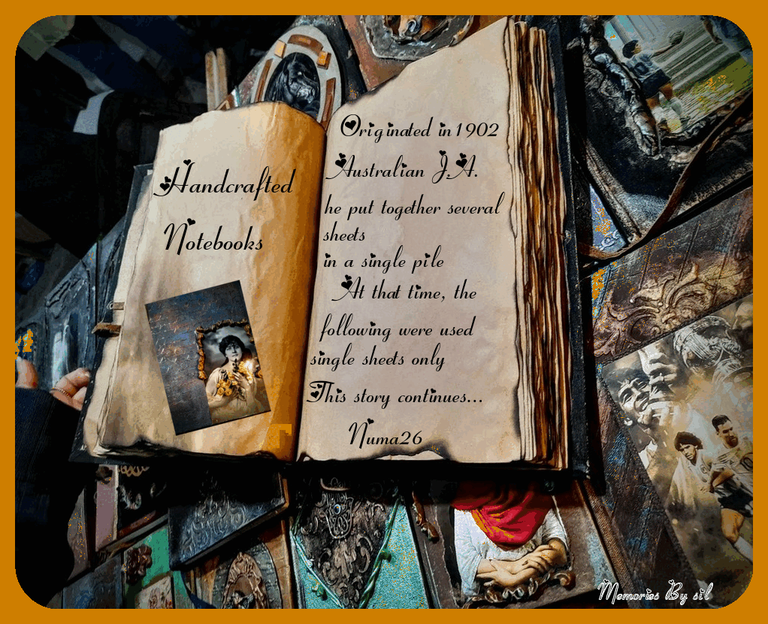 Handcrafted
Notebooks
Originated in 1902
Australian J.A.
he put together several
sheets
in a single pile
At that time, the
following were used
single sheets only
This story continues...
Numa26
Memories By sil